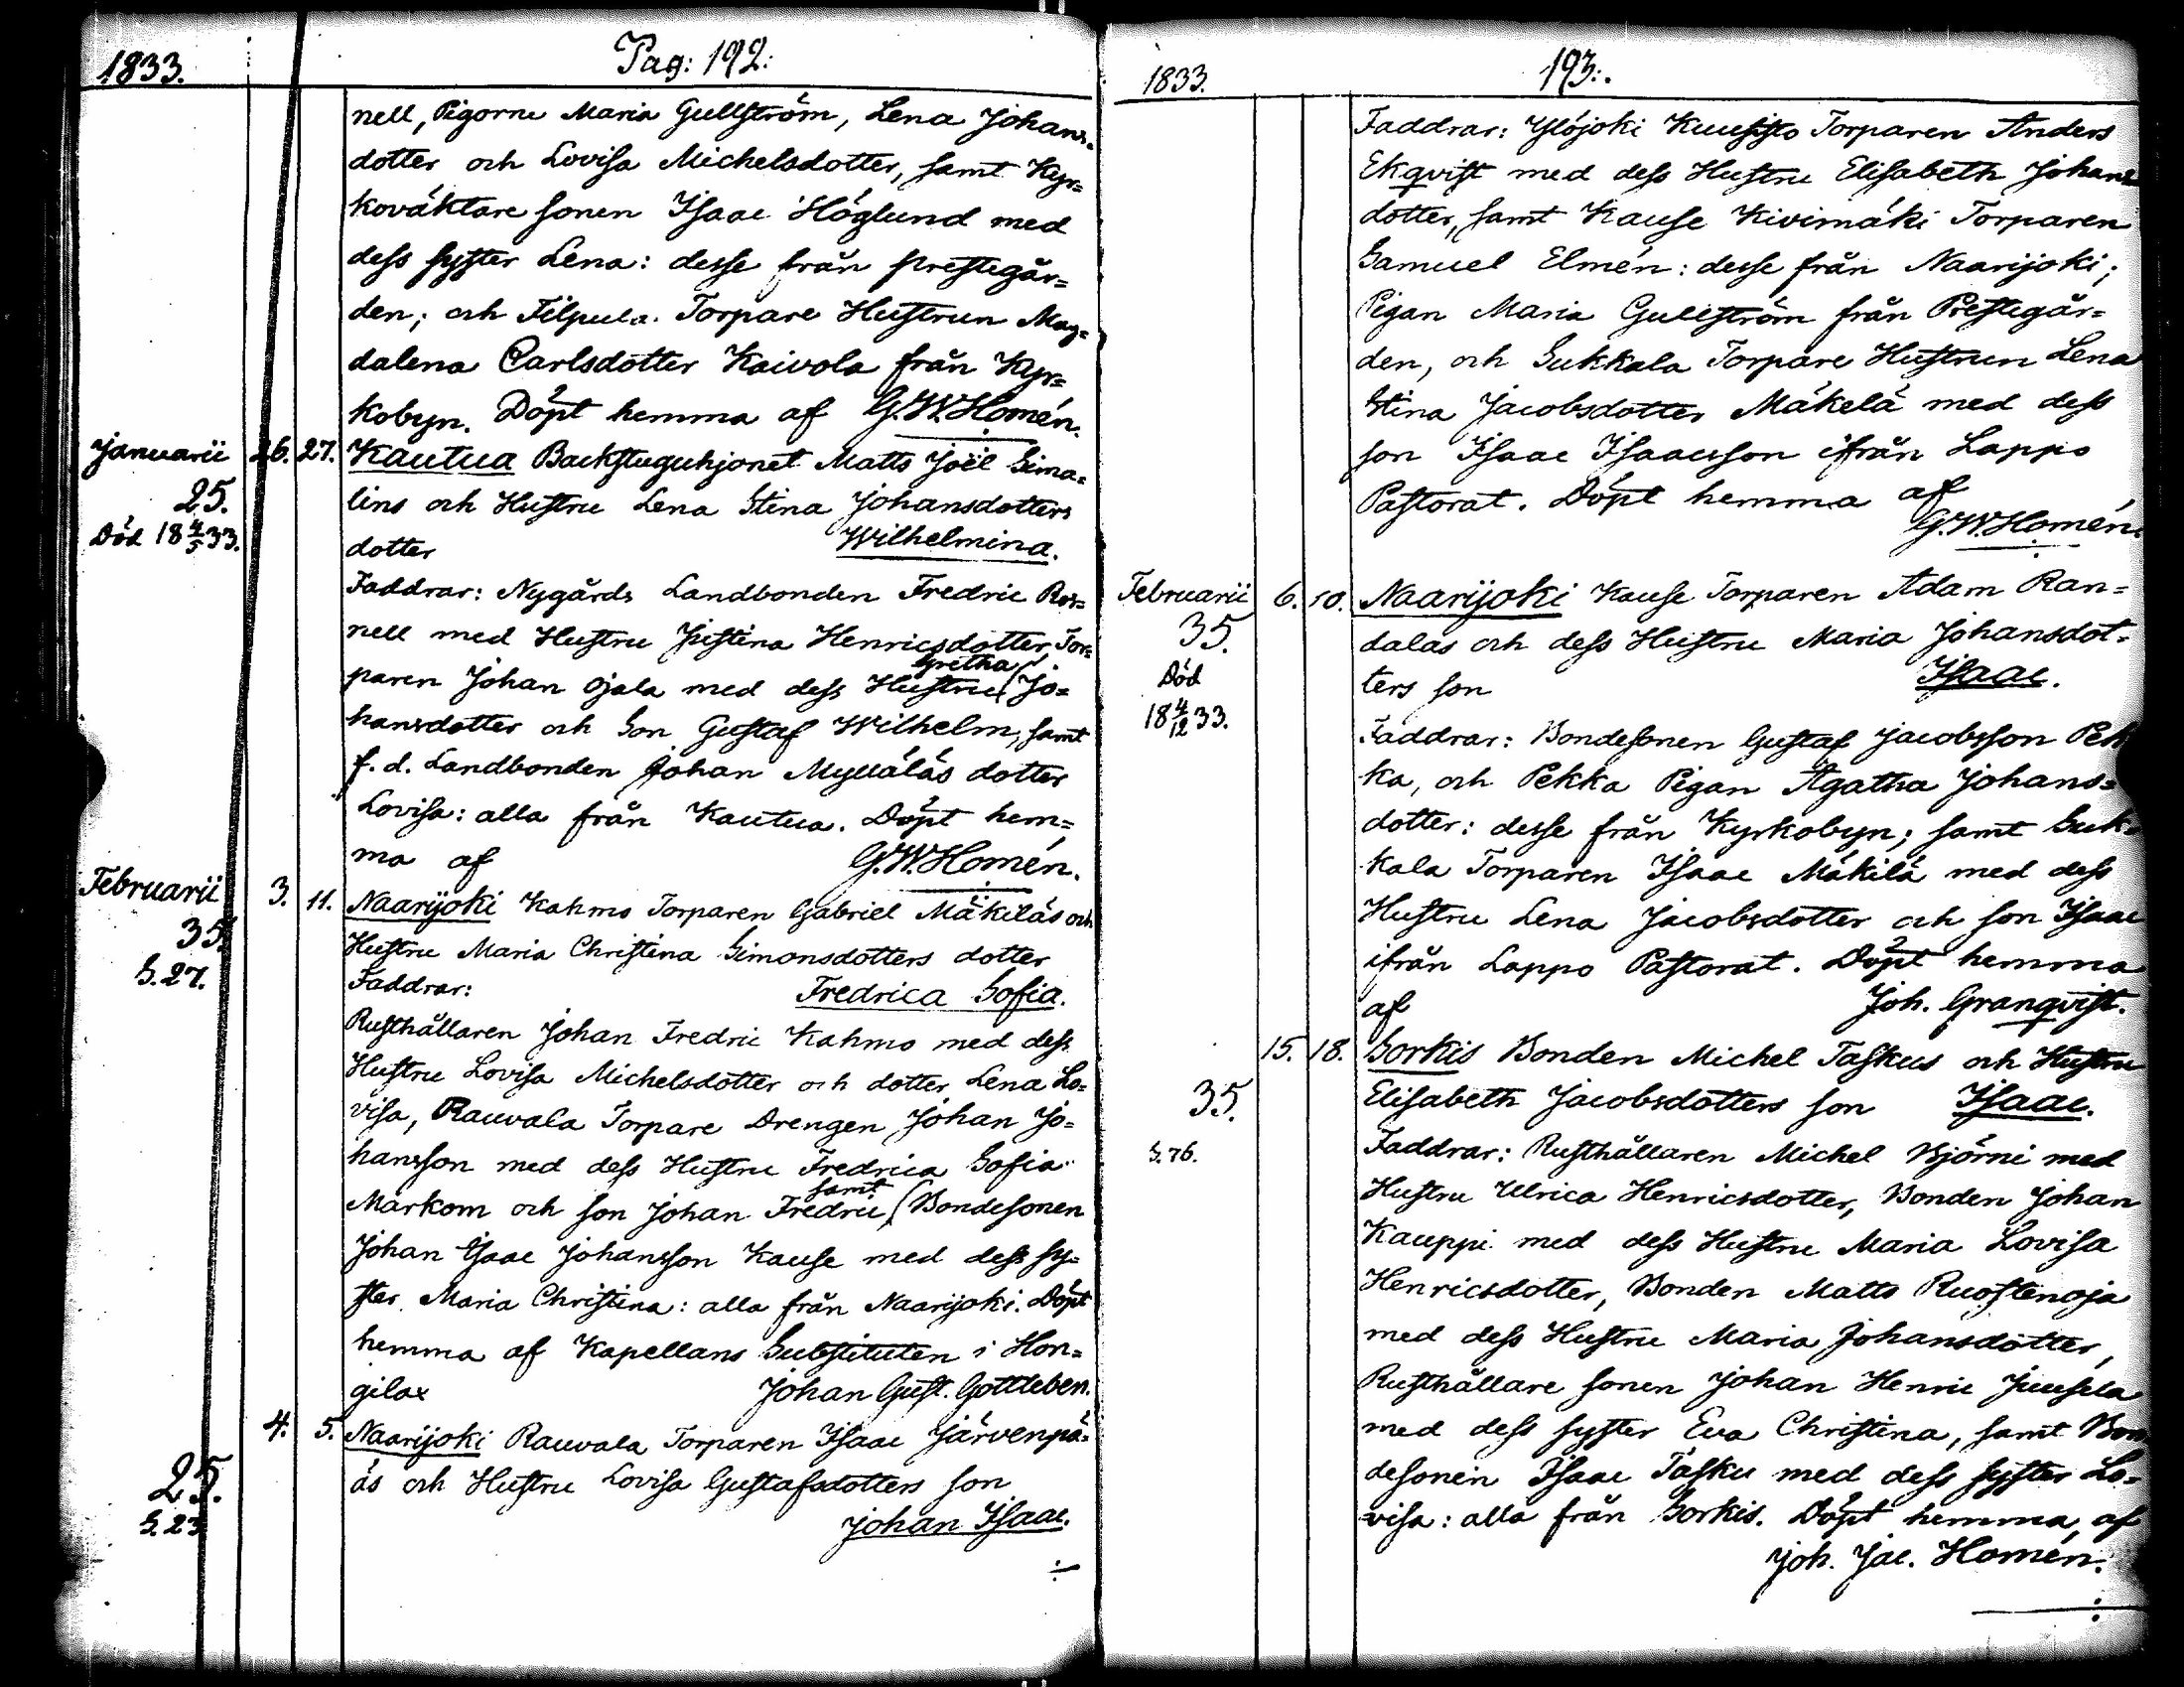 1833.
Pag: 192:
nell, Pigorne Maria Gullström, Lena Johans-
dotter och Lovisa Michelsdotter, samt Kyr=
koväktare sonen Isaac Höglund med
dess syster Lena: desse från prestegår=
den; och Filpula Torpare Hustrun Mag=
dalena Carlsdotter Kaivola från Kyr=
kobyn. Döpt hemma af G.W.Homén.
Januarii 26. 27. Kautua Backstuguhjonet Matts Joël Sima=
25. lins och Hustru Lena Stina Johansdotters
Död 18 4/5 33. dotter Wilhelmina.
Faddrar: Nygårds Landbonden Fredric Ros=
nell med Hustru Justina Henricsdotter, Tor=
paren Johan Ojala med dess Hustru Gretha Jo=
hansdotter och Son Gustaf Wilhelm, samt
f.d. Landbonden Johan Mylläläs dotter
Lovisa: alla från Kautua. Döpt hem=
ma af G.W.Homén.
Februarii 3. 11. Naarijoki Kahmo Torparen Gabriel Mäkiläs och
35. Hustru Maria Christina Simonsdotters dotter
S.27. Faddrar: Fredrica Sofia.
Rusthållaren Johan Fredric Kahmo med dess
Hustru Lovisa Michelsdotter och dotter Lena Lo=
visa, Rauvala Torpare Drengen Johan Jo=
hansson med dess Hustru Fredrica Sofia
Markom och son Johan Fredric, samt Bondesonen
Johan Isaac Johansson Kause med dess sy=
ster Maria Christina: alla från Naarijoki. Döpt
hemma af Kapellans Substituten i Hon=
gilax Johan Gust. Gottleben.
4. 5. Naarijoki Rauvala Torparen Isaac Järvenpä=
25. äs och Hustru Lovisa Gustafsdotters son
S.23 Johan Isaac.
÷
1833.
193:.
Faddrar: Ylöjoki Kuusisto Torparen Anders
Ekqvist med dess Hustru Elisabeth Johans
dotter, samt Kause Kivimäki Torparen
Samuel Elmén: desse från Naarijoki;
Pigan Maria Gullström från Prestegår=
den, och Sukkala Torpare Hustrun Lena
Stina Jacobsdotter Mäkelä med dess
son Isaac Isaacsson ifrån Lappo
Pastorat. Döpt hemma af
G.W.Homén.
Februarii 6. 10. Naarijoki Kause Torparen Adam Ran=
35. dalas och dess Hustru Maria Johansdot=
Död ters son Isaac.
18 4/12 33.
Faddrar: Bondesonen Gustaf Jacobsson Pek
ka, och Pekka Pigan Agatha Johans=
dotter: desse från Kyrkobyn; samt Suk=
kala Torparen Isaac Mäkilä med dess
Hustru Lena Jacobsdotter och son Isaac
ifrån Lappo Pastorat. Döpt hemma
af Joh. Granqvist.
15. 18. Sorkis Bonden Michel Taskus och Hustru
35. Elisabeth Jacobsdotters son Isaac.
S.76. Faddrar: Rusthållaren Michel Björni med
Hustru Ulrica Henricsdotter, Bonden Johan
Kauppi med dess Hustru Maria Lovisa
Henricsdotter, Bonden Matts Ruostenoja
med dess Hustru Maria Johansdotter,
Rusthållare sonen Johan Henric Juusela
med dess syster Eva Christina, samt Bon
desonen Isaac Tasku med dess syster Lo=
visa: alla från Sorkis. Döpt hemma, af
Joh. Jac. Homén.